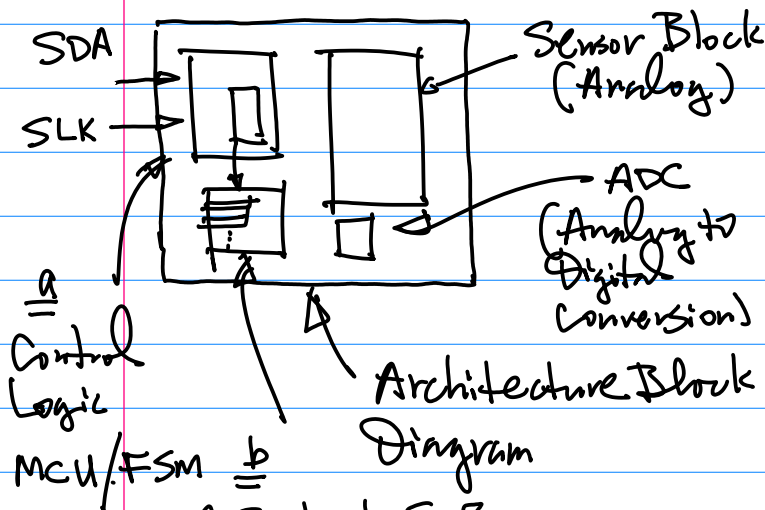 SDA
SLK
Sensor Block
(Analog)
ADC
(Analog to
Digital
Conversion)
a
Control
Logic
Architecture Block
Diagram
MCU/FSM
b